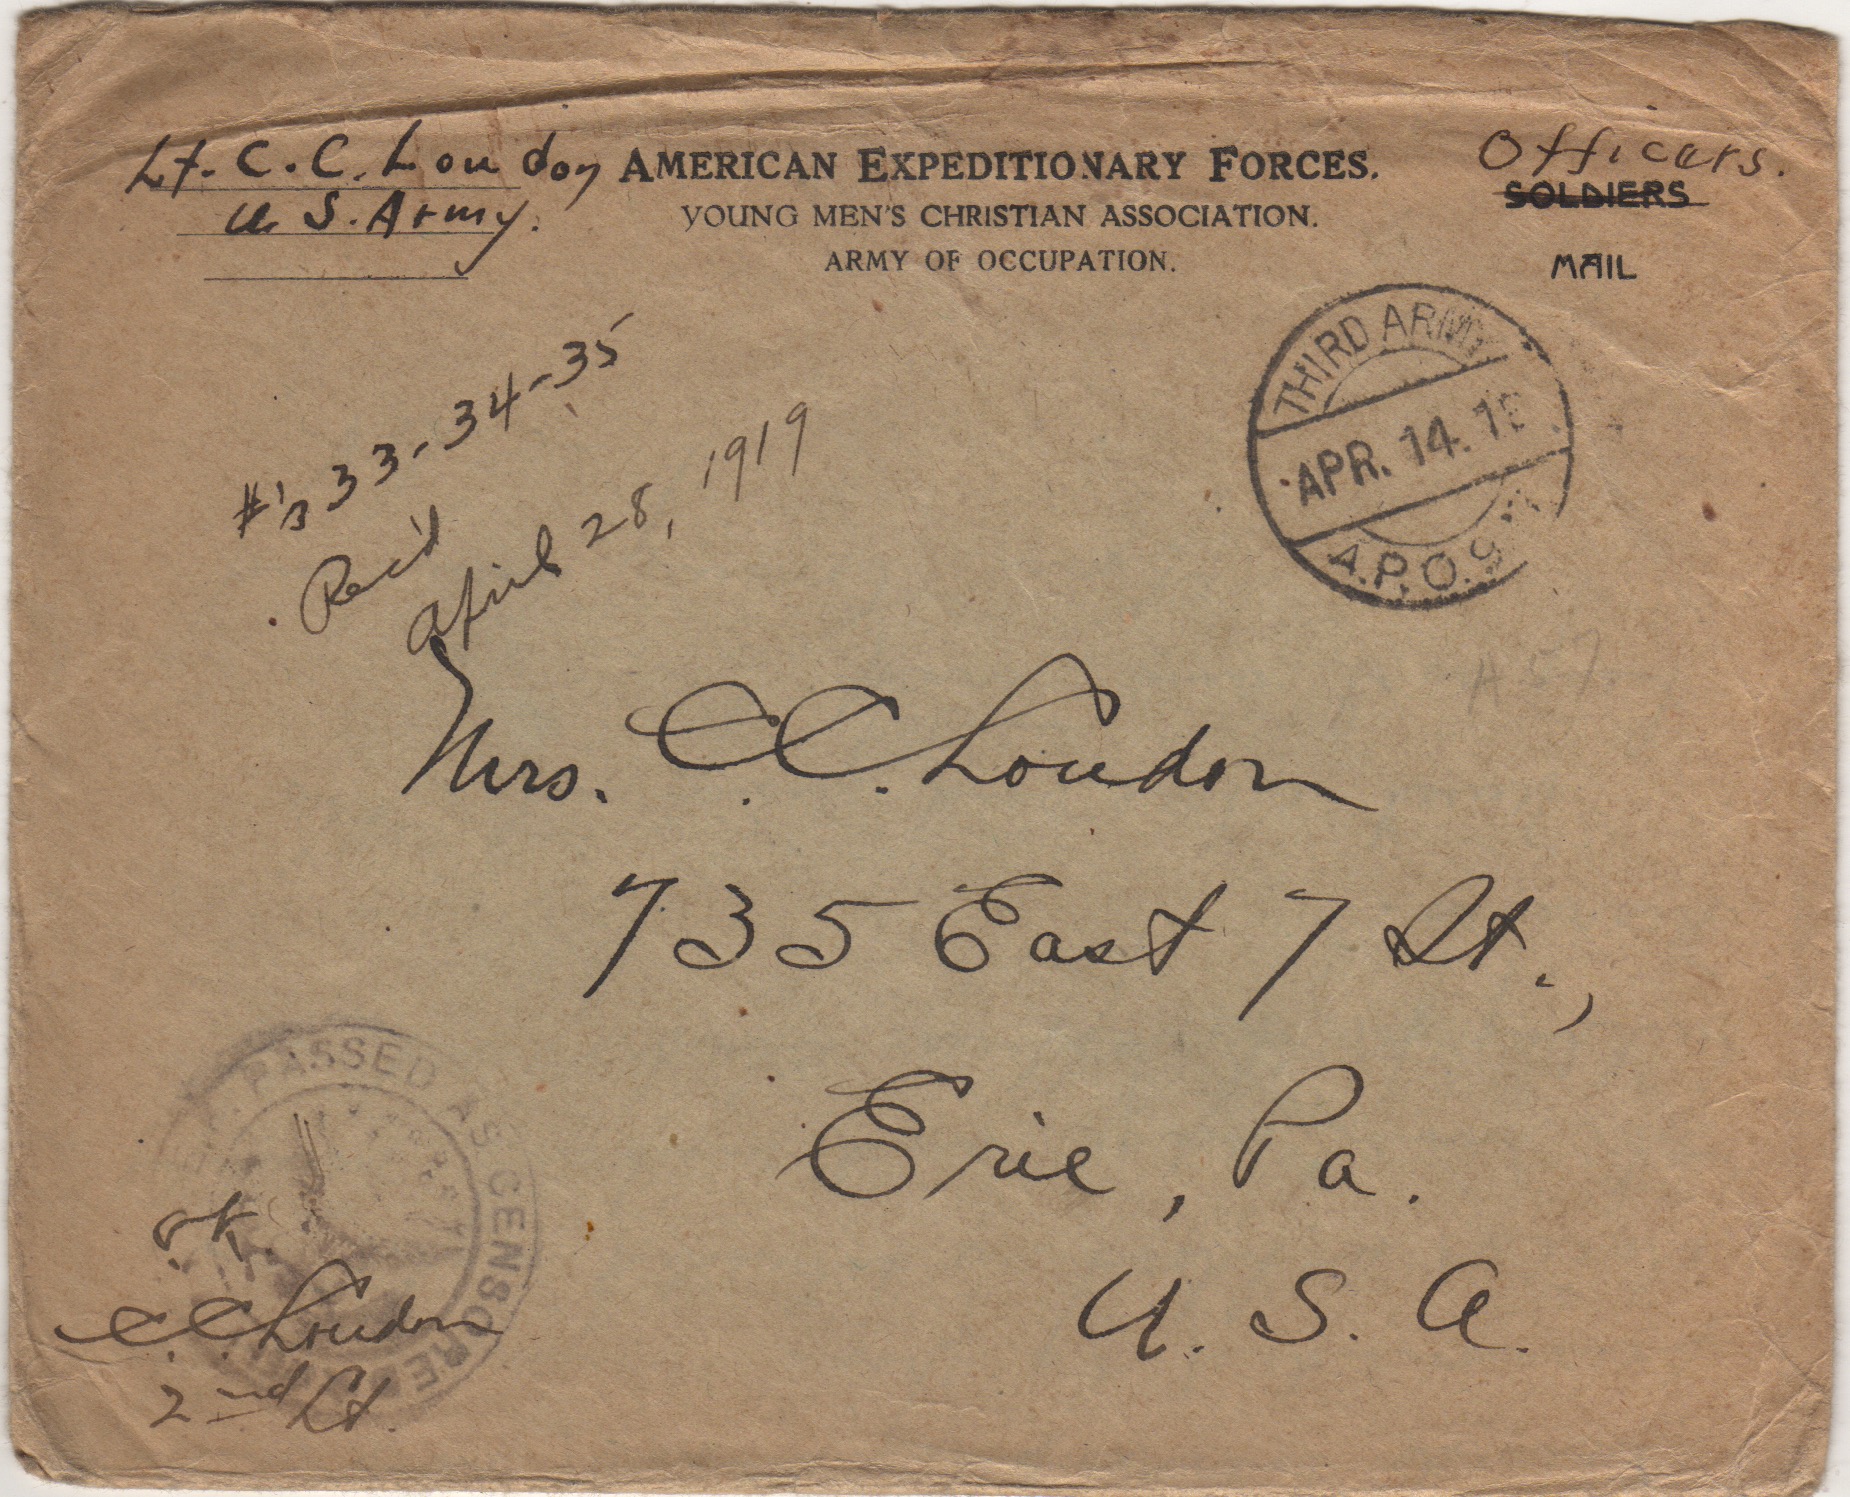 Lt. C. C. Loudon
U. S. Army.
AMERICAN EXPEDITIONARY FORCES.
YOUNG MEN'S CHRISTIAN ASSOCIATION.
ARMY OF OCCUPATION.
Officers.
SOLDIERS
MAIL
THIRD ARMY
APR. 14. 19
A.P.O. 9
#'s 33-34-35
Rec'd
April 28, 1919
A 57
Mrs. C. C. Loudon
735 East 7 St.,
Erie, Pa.
U. S. A.
PASSED AS CENSORED
O.K.
C. C. Loudon
2nd Lt.